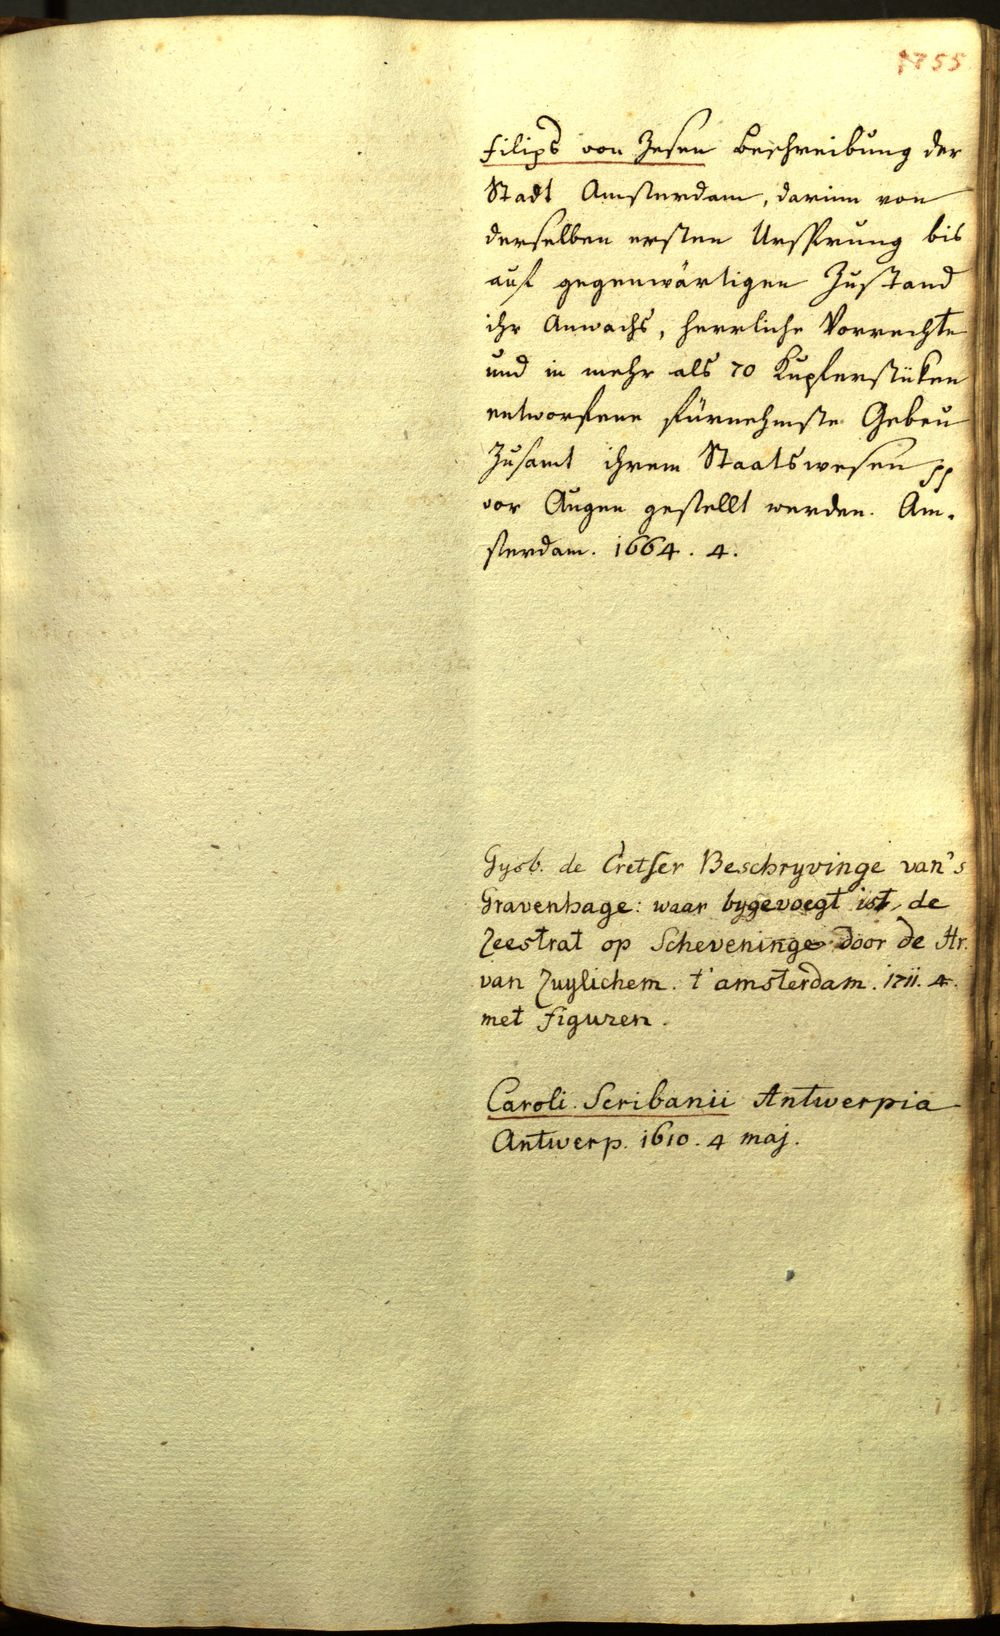 1755
Filips von Zesen Beschreibung der
Stadt Amsterdam, darinn von
derselben ersten Ursprung bis
auf gegenwärtigen Zustand
ihr Anwachs, herrliche Vorrechte
und in mehr als 70 Kupferstüken
entworfene fürnehmste Gebeu
Zusamt ihrem Staatswesen pp
vor Augen gestellt werden. Am-
sterdam. 1664. 4.
Gysb. de Cretser Beschryvinge van's
Gravenhage: waar bygevoegt ist, de
Zeestrat op Scheveninge door de Hr.
van Zuylichem. t'amsterdam. 1711. 4.
met figuren.
Caroli Scribanii Antwerpia
Antwerp. 1610. 4 maj.